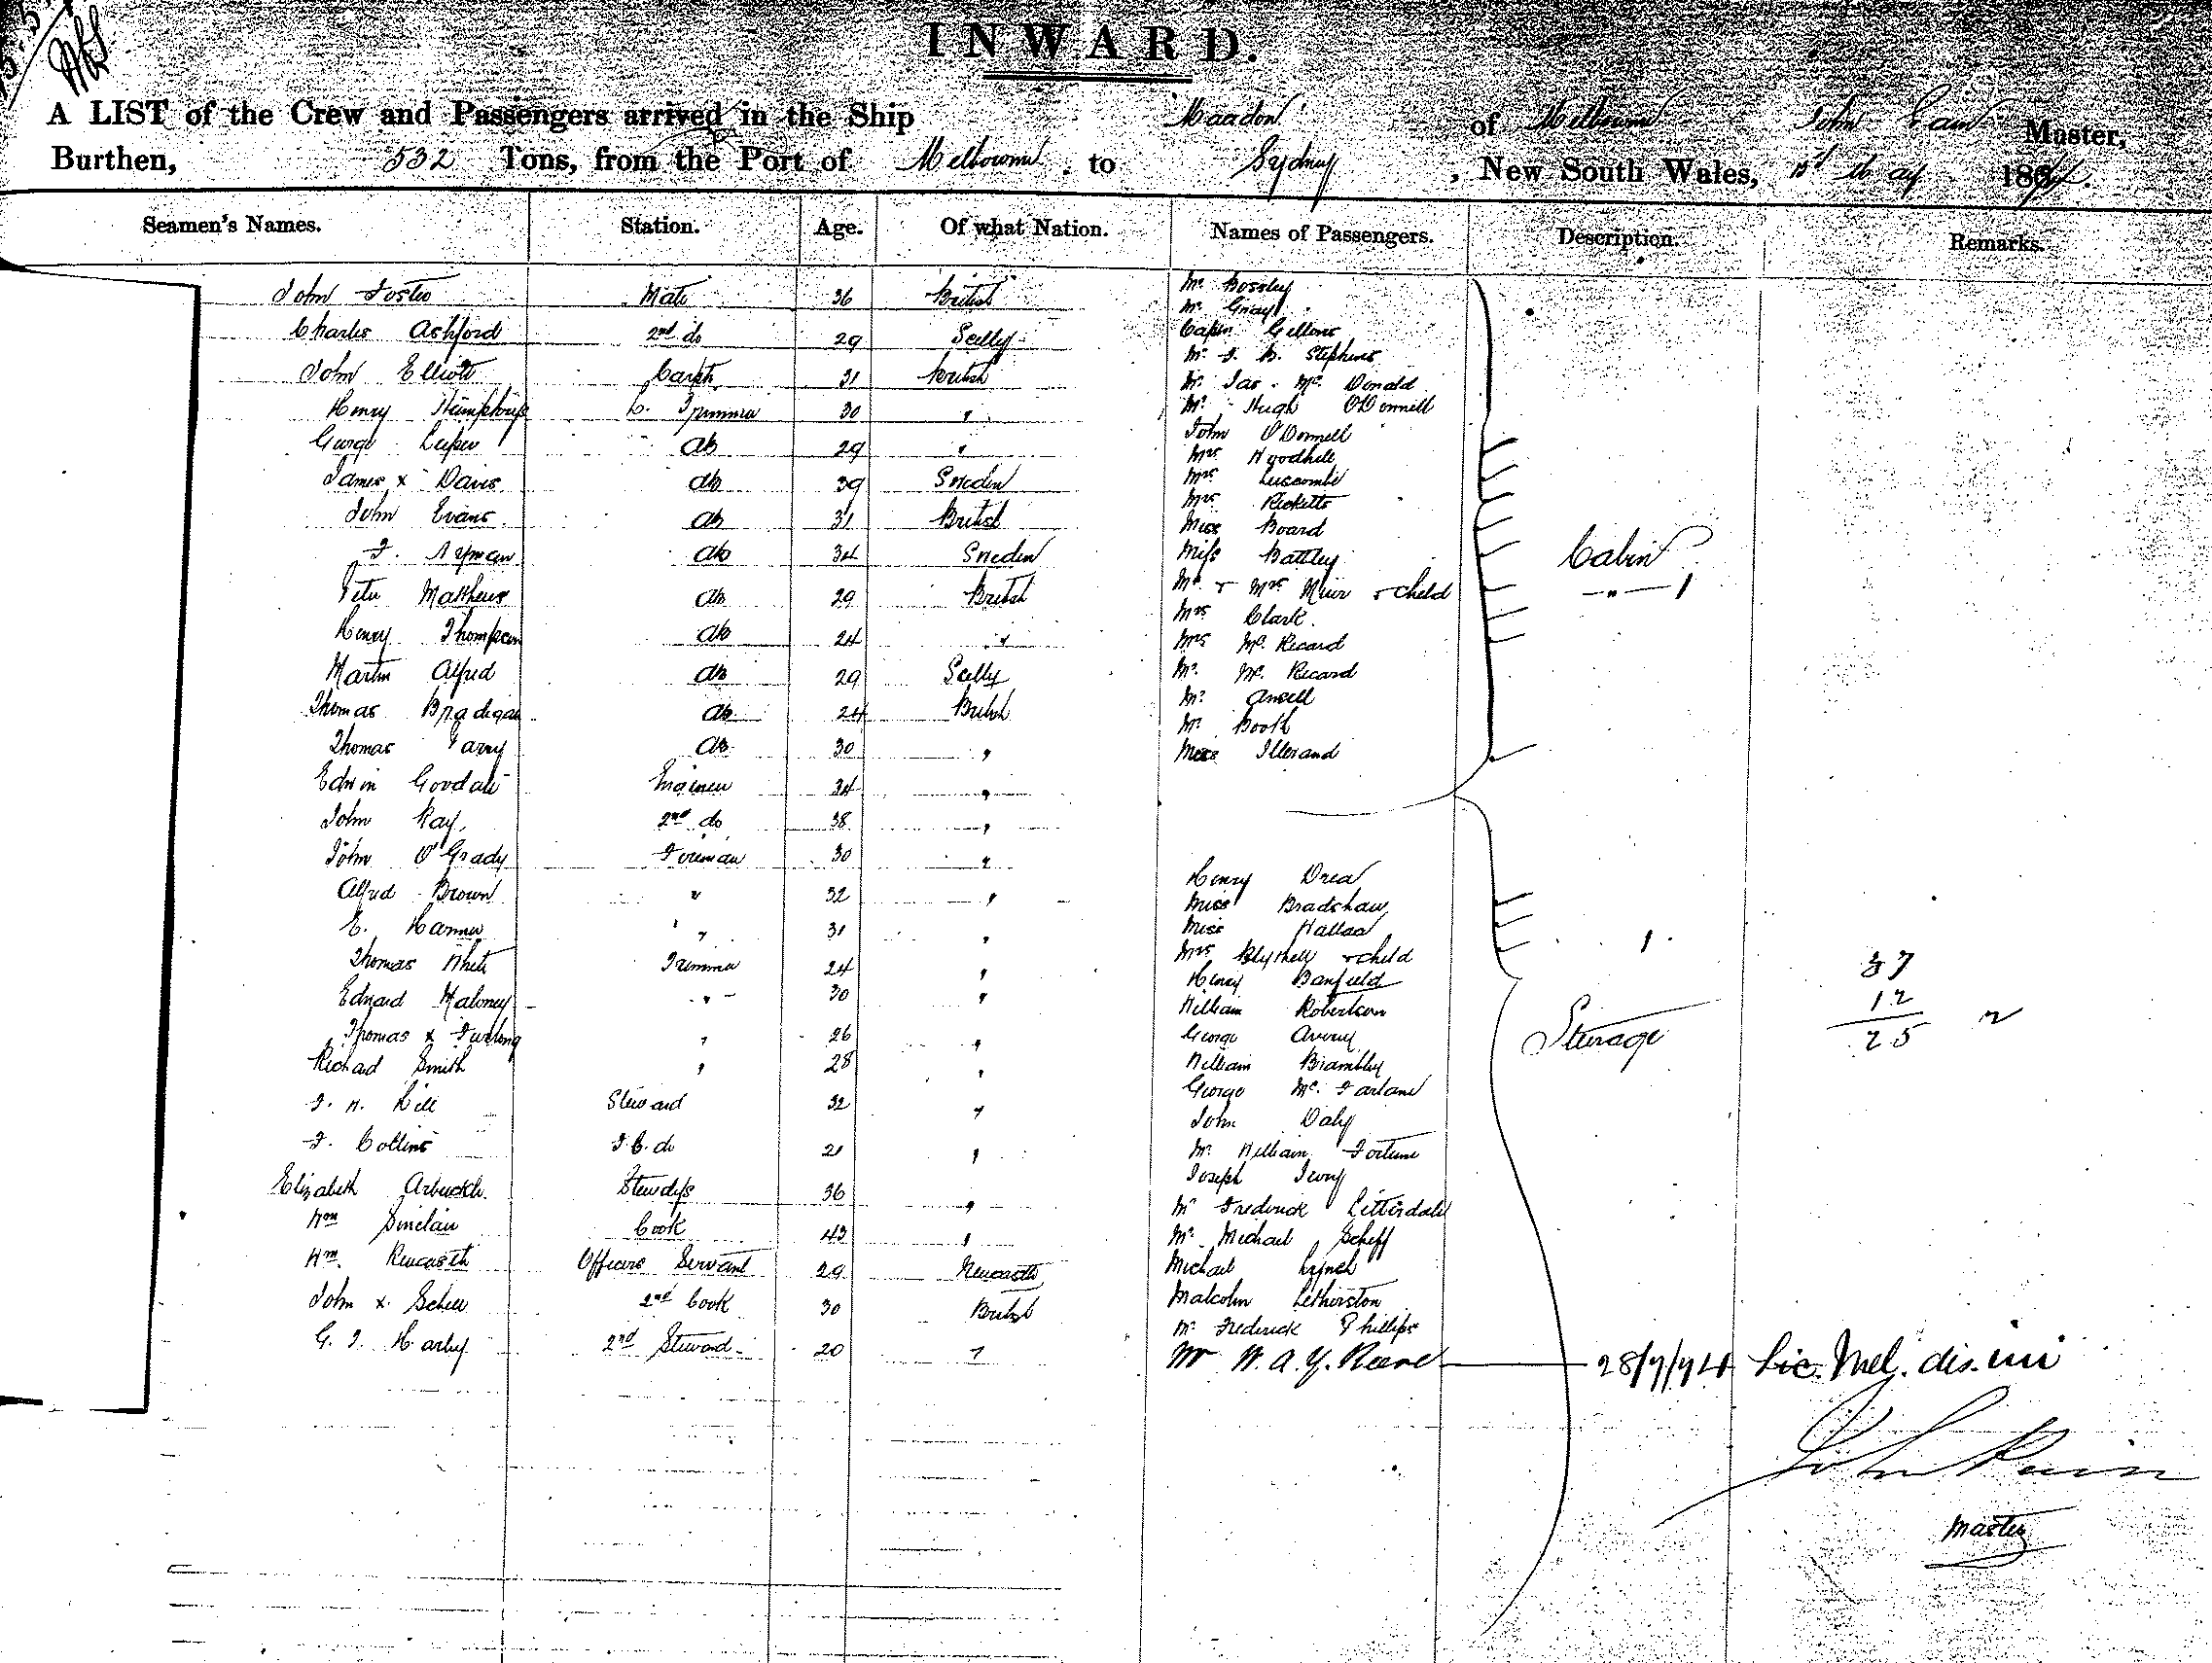 INWARD.
A LIST of the Crew and Passengers arrived in the Ship of Melbourne John Master,
Burthen, 532 Tons, from the Port of Melbourne to Sydney, New South Wales, 1st May 186
Seamen's Names. Station. Age. Of what Nation. Names of Passengers. Description. Remarks.
John Foster Mate 36 British
Charles Ashford 2nd do 29 Scilly
John Elliott Carptr 31 British
Henry Humphreys C. Trimmer 30 "
George ab 29 "
James x Davis ab 39 Sweden
John Evans ab 31 British
F. Nyman ab 34 Sweden
Peter Matthews ab 29 British
Henry Thompson ab 24 "
Martin Alfred ab 29 Scilly
Thomas Bradigan ab 24 British
Thomas Garry ab 30 "
Edwin Goodall Engineer 34 "
John Ray 2nd do 38 "
John O'Grady Fireman 30 "
Alfred Brown " 32 "
E. Hanner " 31 "
Thomas White Trimmer 24 "
Edward Maloney " 30 "
Thomas x Furlong " 26 "
Richard Smith " 28 "
Steward 32 "
F. Collins F.C. do 21 "
Elizabeth Arbuckle Stewdess 36 "
Wm Sinclair Cook 43 "
Wm. Officers Servant 29 Newcastle
John x 2nd Cook 30 British
G. F. Harby 2nd Steward 20 "
Mr. Bossley
Mr. Gray
Capn Gillons
Mr. Stephens
Mr. Jas. Mc. Donald
Mr. Hugh O'Donnell
John O'Donnell
Mrs Woodhill
Mrs Luscombe
Mrs Ricketts
Miss Board
Miss Battley
Mr. & Mrs Muir & Child
Mrs Clark.
Mrs Mc. Recard
Mr. Mc. Recard
Mr. Ansell
Mr. Booth
Miss Illerand
Cabin
"
Henry Drea
Miss Bradshaw
Miss Wallace
Mrs Blythell & Child
Henry Banfield
William Robertson
George Avery
William Brambley
George Mc. Farlane
John Daly
Mr. William Fortune
Joseph Ivory
Mr Frederick Litterdale
Mr. Michael Scheff
Michael Lynch
Malcolm Letherston
Mr. Frederick Phillips
Mr W. A. Y. Reeve 28/7/74 Lic. Mel. dis.
Steerage
37
12
25
John
Master